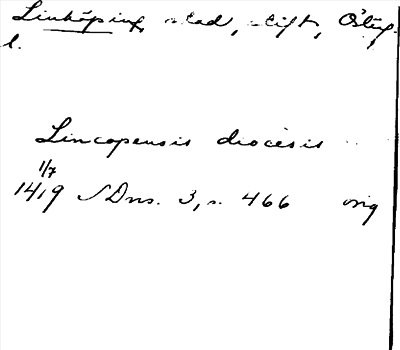 Linköping stad, stift, Östg.
l.
Lincopensis diocesis
1/7
1419 SDns. 3, s. 466 orig